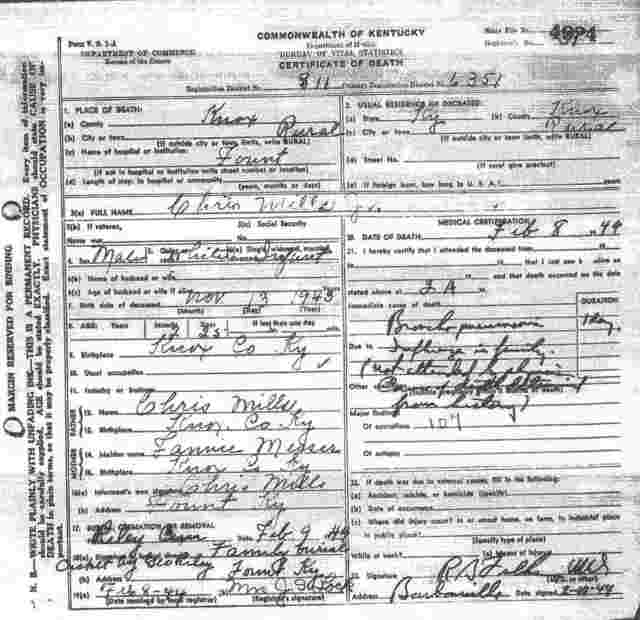 COMMONWEALTH OF KENTUCKY
Form V. S. 1-A
DEPARTMENT OF COMMERCE
Bureau of the Census
BUREAU OF VITAL STATISTICS
CERTIFICATE OF DEATH
State File No. 4974
Registrar's No.
Registration District No. 811 Primary Registration District No. 6351
1. PLACE OF DEATH:
(a) County Knox
(b) City or town Rural
(If outside city or town limits, write RURAL)
(c) Name of hospital or institution: Fount
(If not in hospital or institution write street number or location)
(d) Length of stay: In hospital or community
(years, months or days)
2. USUAL RESIDENCE OF DECEASED:
(a) State Ky (b) County Knox
(c) City or town Rural
(If outside city or town limits, write RURAL)
(d) Street No.
(If rural give precinct)
(e) If foreign born, how long in U. S. A.?
3(a) FULL NAME Chris Mills Jr.
3(b) If veteran, 3(c) Social Security
Name war
4. Sex Male
6(b) Name of husband or wife
6(c) Age of husband or wife if alive
7. Birth date of deceased Nov 13 1943
(Month) (Day) (Year)
8. AGE: Years Months Days If less than one day
9. Birthplace Knox Co Ky
10. Usual occupation
11. Industry or business
FATHER
12. Name Chris Mills
13. Birthplace Knox Co Ky
MOTHER
14. Maiden name Fannie Messer
15. Birthplace Knox Co Ky
16(a) Informant's own signature Chris Mills
(b) Address Fount Ky
17. BURIAL, CREMATION OR REMOVAL
Date Feb 9 44
Family burial
Fount Ky
19(a) Feb 8-44
(Date received by local registrar) (Registrar's signature)
MEDICAL CERTIFICATION
20. DATE OF DEATH: Feb 8
21. I hereby certify that I attended the deceased from
that I last saw h alive on
and that death occurred on the date
stated above at
Immediate cause of death
DURATION
Broncho pneumonia 1 day
Due to Influenza in family.
(not attended by
Other
from history)
Major findings:
Of operations 107
Of autopsy
22. If death was due to external causes, fill in the following:
(a) Accident, suicide, or homicide (specify)
(b) Date of occurrence
(c) Where did injury occur? in or about home, on farm, in industrial place
in public place?
(Specify type of place)
While at work? (e) Means of injury
23. Signature
Address Barbourville Date signed 2-10-44
MARGIN RESERVED FOR BINDING
N. B.—WRITE PLAINLY WITH UNFADING INK—THIS IS A PERMANENT RECORD. Every item of information
should be carefully supplied. AGE should be stated EXACTLY. PHYSICIANS should state CAUSE OF
DEATH in plain terms, so that it may be properly classified. Exact statement of OCCUPATION is very important.